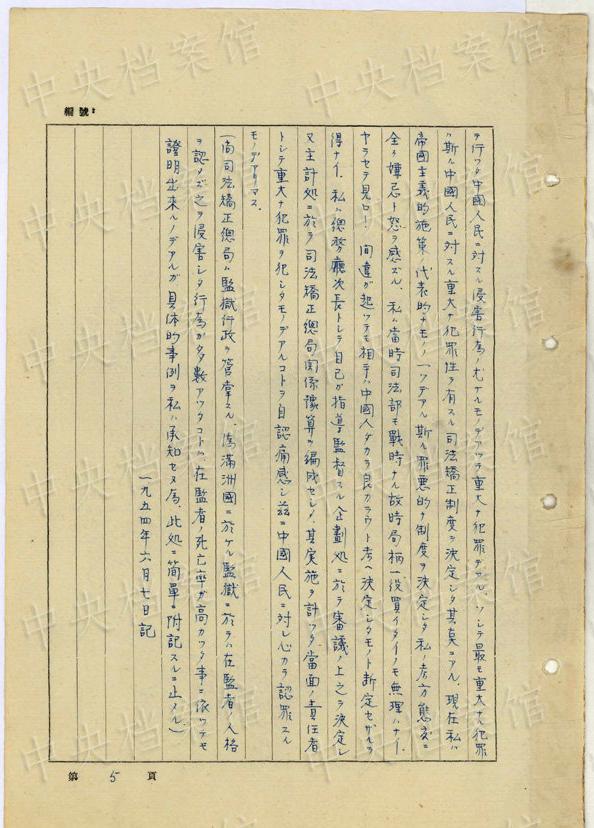 編號:
ヲ行ツタ中國人民ニ対スル侵害行為ノ尤ナルモノデアツテ重大ナ犯罪デアル。ソシテ最モ重大ナ犯罪
ハ斯ル中國人民ニ対スル重大ナ犯罪性ヲ有スル司法矯正制度ヲ決定シタ其莫ニアル。現在私ハ
帝國主義的施策ノ代表的ナモノノ一ツデアル斯ル罪悪的ナ制度ヲ決定シタ私ノ考方態度ニ
全ク嫌忌ト怒ヲ感ズル。私ハ當時司法部モ戰時ナル故時局柄一役買イタイノモ無理ハナイ、
ヤラセテ見ロ! 間違ガ起ツテモ相手ハ中國人ダカラ良カラウト考ヘ決定シタモノト断定セザルヲ
得ナイ。私ハ總務廳次長トシテ自己ガ指導監督スル企劃処ニ於テ審議ノ上之ヲ決定シ
又主計処ニ於テ司法矯正總局関係豫算ヲ編成セシメ、其実施ヲ計ツタ當面ノ責任者
トシテ重大ナ犯罪ヲ犯シタモノデアルコトヲ自認痛感シ茲ニ中國人民ニ対シ心カラ認罪スル
モノデアリマス。
(尚司法矯正總局ハ監獄行政ヲ管掌スル。偽滿洲國ニ於ケル監獄ニ於テハ在監者ノ人格
ヲ認メズ之ヲ侵害シタ行為ガ多數アツタコトハ、在監者ノ死亡率ガ高カツタ事ニ依ツテモ
證明出來ルノデアルガ具体的事例ヲ私ハ承知セヌ為、此処ニ簡單ニ附記スルニ止メル。)
一九五四年六月七日記
第 5 頁
中央档案馆